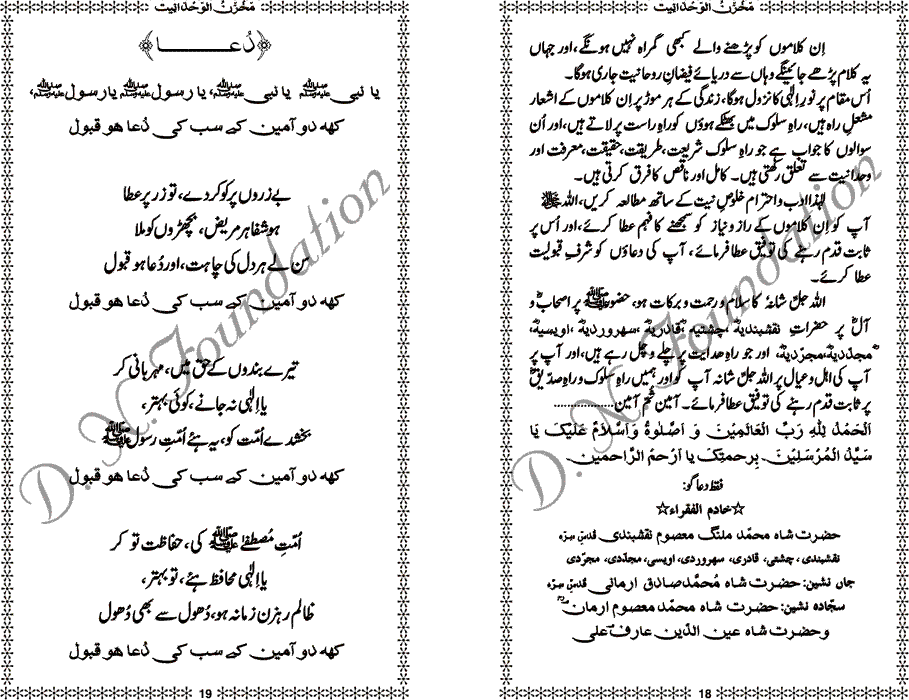 مَخْزَنُ الوَحْدَانیت
اِن کلاموں کو پڑھنے والے کبھی گمراہ نہیں ہونگے، اور جہاں
یہ کلام پڑھے جائینگے وہاں سے دریائے فیضانِ روحانیت جاری ہوگا۔
اُس مقام پر نورِ اِلٰہی کا نزول ہوگا، زندگی کے ہر موڑ پر اِن کلاموں کے اشعار
مشعلِ راہ ہیں، راہِ سلوک میں بھٹکے ہوؤں کو راہِ راست پر لاتے ہیں، اور اُن
سوالوں کا جواب ہے جو راہِ سلوک شریعت، طریقت، حقیقت، معرفت اور
وحدانیت سے تعلق رکھتی ہیں۔ کامل اور ناقص کا فرق کرتی ہیں۔
لہٰذا ادب و احترام خلوصِ نیت کے ساتھ مطالعہ کریں، اللہ ﷻ
آپ کو اِن کلاموں کے راز و نیاز کو سمجھنے کا فہم عطا کرئے، اور اُس پر
ثابت قدم رہنے کی توفیق عطا فرمائے، آپ کی دعاؤں کو شرفِ قبولیت
عطا کرئے۔
اللہ جلّ شانہٗ کا سلام و رحمت و برکات ہو، حضور ﷺ پر اصحاب و
آل پر حضراتِ نقشبندیہ، چشتیہ، قادریہ، سہروردیہ، اویسیہ،
مجدّدیہ، مجرّدیہ اور جو راہِ ھدایت پر چلے و چل رہے ہیں، اور آپ پر
آپ کی اہل و عیال پر اللہ جلّ شانہ آپ کو اور ہمیں راہِ سلوک و راہِ صدّیق
پر ثابت قدم رہنے کی توفیق عطا فرمائے۔ آمین ثم آمین................
اَلْحَمْدُ لِلّٰہِ رَبِّ الْعَالَمِیْنَ وَ اَصَّلٰوۃُ وَاَسَّلَامُ عَلَیْکَ یَا
سَیِّدُ الْمُرْسَلِیْنَ۔ بِرَحْمَتِکَ یَا اَرْحَمَ الرَّاحِمین۔
فقط دعا گو:
☆خادم الفقراء☆
حضرت شاہ محمّد ملنگ معصوم نقشبندی قدس سرہٗ
نقشبندی، چشتی، قادری، سہروردی، اویسی، مجدّدی، مجرّدی
جاں نشین: حضرت شاہ مُحمَّد صادق ارمانی قدس سرہٗ
سجّادہ نشین: حضرت شاہ محمّد معصوم ارمان
وحضرت شاہ عین الدّین عارف علی
18
D. N. Foundation
مَخْزَنُ الوَحْدَانیت
﴿دُعـــــــا﴾
یا نبی ﷺ یا نبی ﷺ، یا رسول ﷺ یا رسول ﷺ،
کھہ دو آمین کے سب کی دُعا ھو قبول
بے زروں پر کو کردے، تو زر پر عطا
ہو شفا ہر مریض، بچھڑوں کو ملا
سن لے ہر دل کی چاہت، اور دُعا ہو قبول
کھہ دو آمین کے سب کی دُعا ھو قبول
تیرے بندوں کے حق میں، مہربانی کر
یا اِلٰہی نہ جانے، کوئی بہتر،
بخشدے اُمّت کو، یہ ہئے اُمّتِ رسول ﷺ
کھہ دو آمین کے سب کی دُعا ھو قبول
اُمّتِ مُصطفےٰ ﷺ کی، حفاظت تو کر
یا اِلٰہی محافظ ہئے، تو بہتر،
ظالم رہزن زمانہ ہو، دُھول سے بھی دُھول
کھہ دو آمین کے سب کی دُعا ھو قبول
19
D. N. Foundation